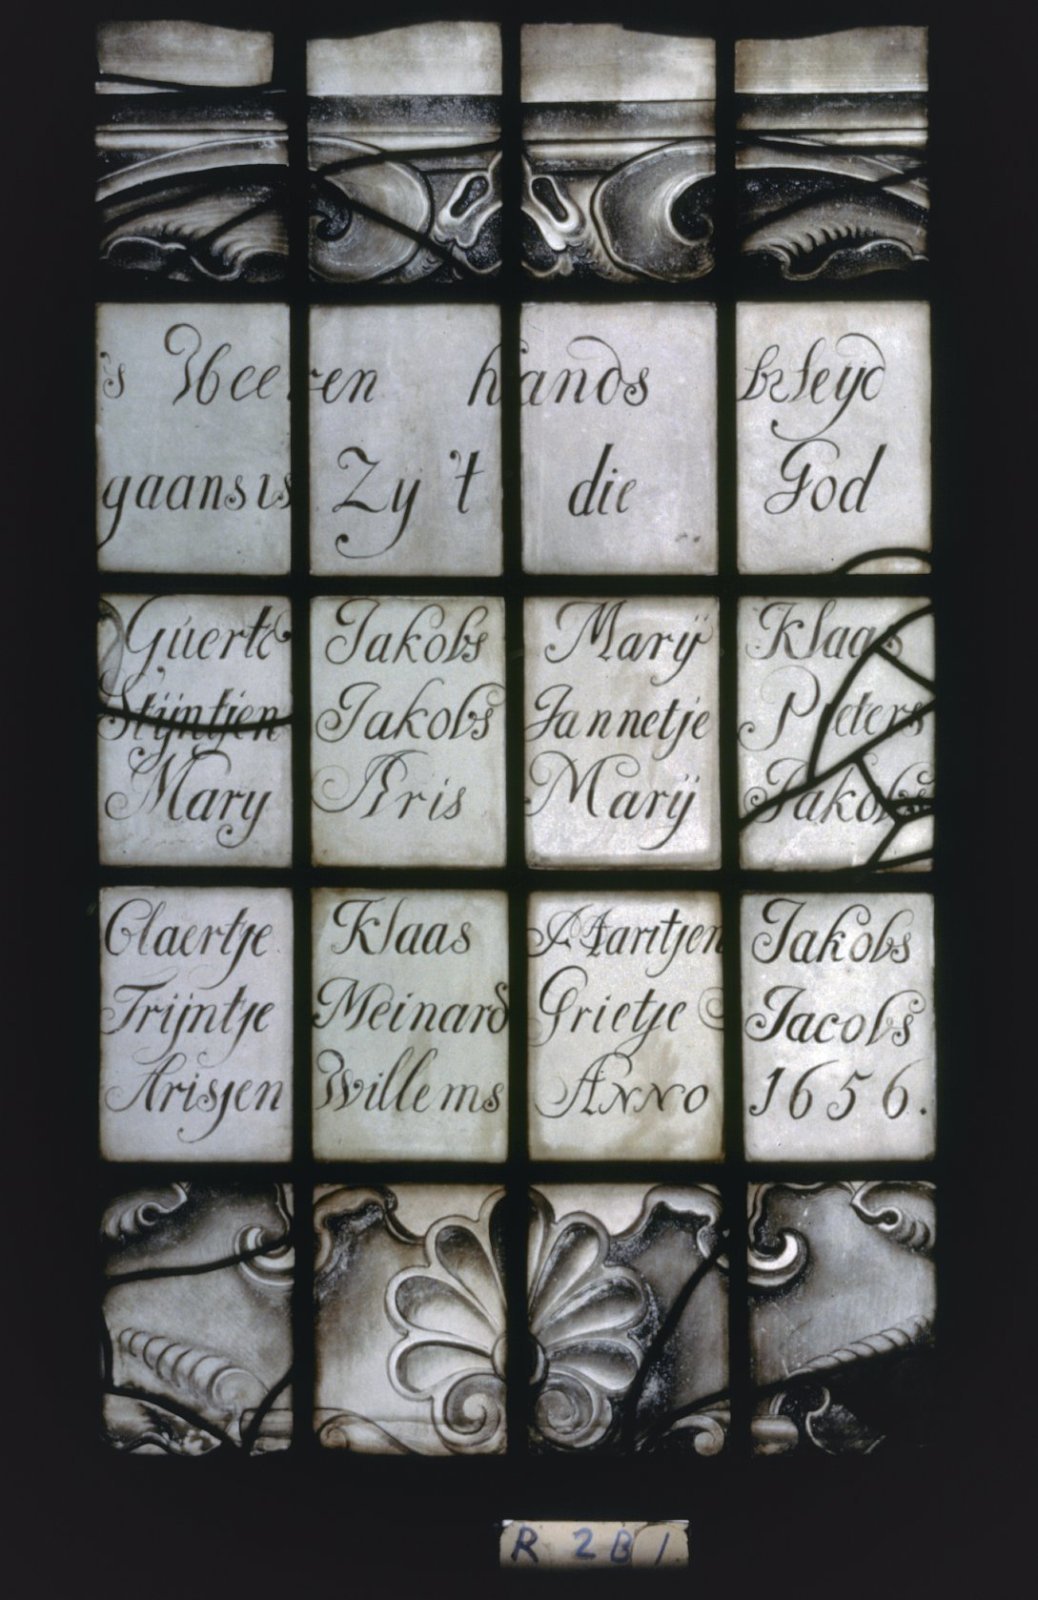 's Heeren hands beleyd
gaans is Zy 't die God
Guerte Jakobs Marij Klaas
Stijntjen Jakobs Jannetje Pieters
Mary Aris Marij Jakobs
Claertje Klaas Maritjen Jakobs
Trijntje Meinard Grietje Jacobs
Arisjen Willems Anno 1656.
R 2B1